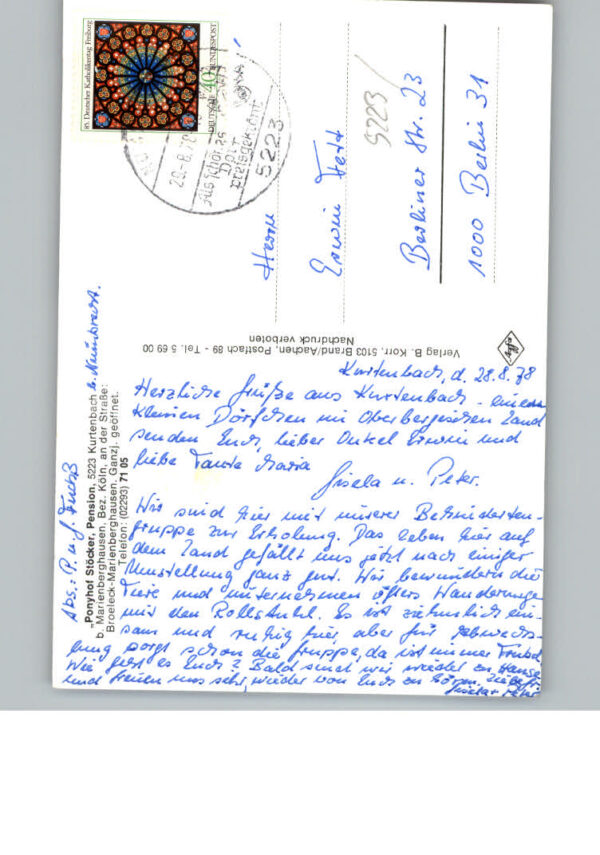 85. Deutscher Katholikentag Freiburg
40
DEUTSCHE BUNDESPOST
28.-8.78
Als schönstes
Dorf
preisgekrönt
5223
Herrn
Erwin
Berliner Str. 23
1000 Berlin 31
5223
Verlag B. Korr, 5103 Brand/Aachen, Postfach 89 - Tel. 5 69 00
Nachdruck verboten
„Ponyhof Stöcker, Pension, 5223 Kurtenbach b.
b. Marienberghausen, Bez. Köln, an der Straße:
Broeleck-Marienberghausen. Ganzj. geöffnet.
Telefon: (02293) 71 05
Abs.: P. u. G.
Kurtenbach, d. 28.8.78
Herzliche Grüße aus Kurtenbach - einem
kleinen Dörfchen im Oberbergischen Land
senden Euch, lieber Onkel Erwin und
liebe Tante Maria
Gisela u. Peter.
Wir sind hier mit unserer Behinderten-
gruppe zur Erholung. Das Leben hier auf
dem Land gefällt uns jetzt nach einiger
Umstellung ganz gut. Wir bewundern die
Tiere und unternehmen öfters Wanderungen
mit den Rollstuhl. Es ist ziehmlich ein-
sam und ruhig hier, aber für Abwechs-
lung sorgt schon die Gruppe, da ist immer Trubel
Wie geht es Euch? Bald sind wir wieder zu Hause
und freuen uns sehr, wieder von Euch zu hören.
Gisela + Peter